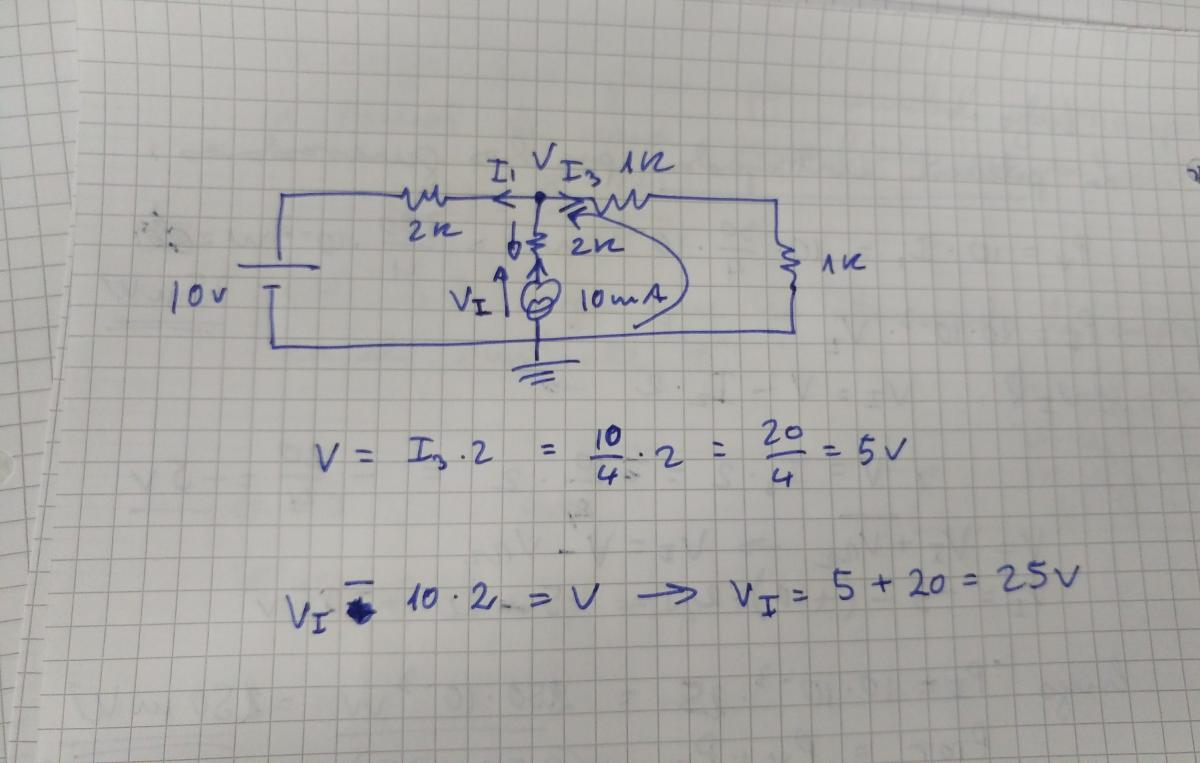 I₁ V I₃ 1K
2K 2K
1K
10V V_I 10mA
V = I₃ · 2 = 10/4 · 2 = 20/4 = 5V
V_I - 10 · 2 = V → V_I = 5 + 20 = 25V